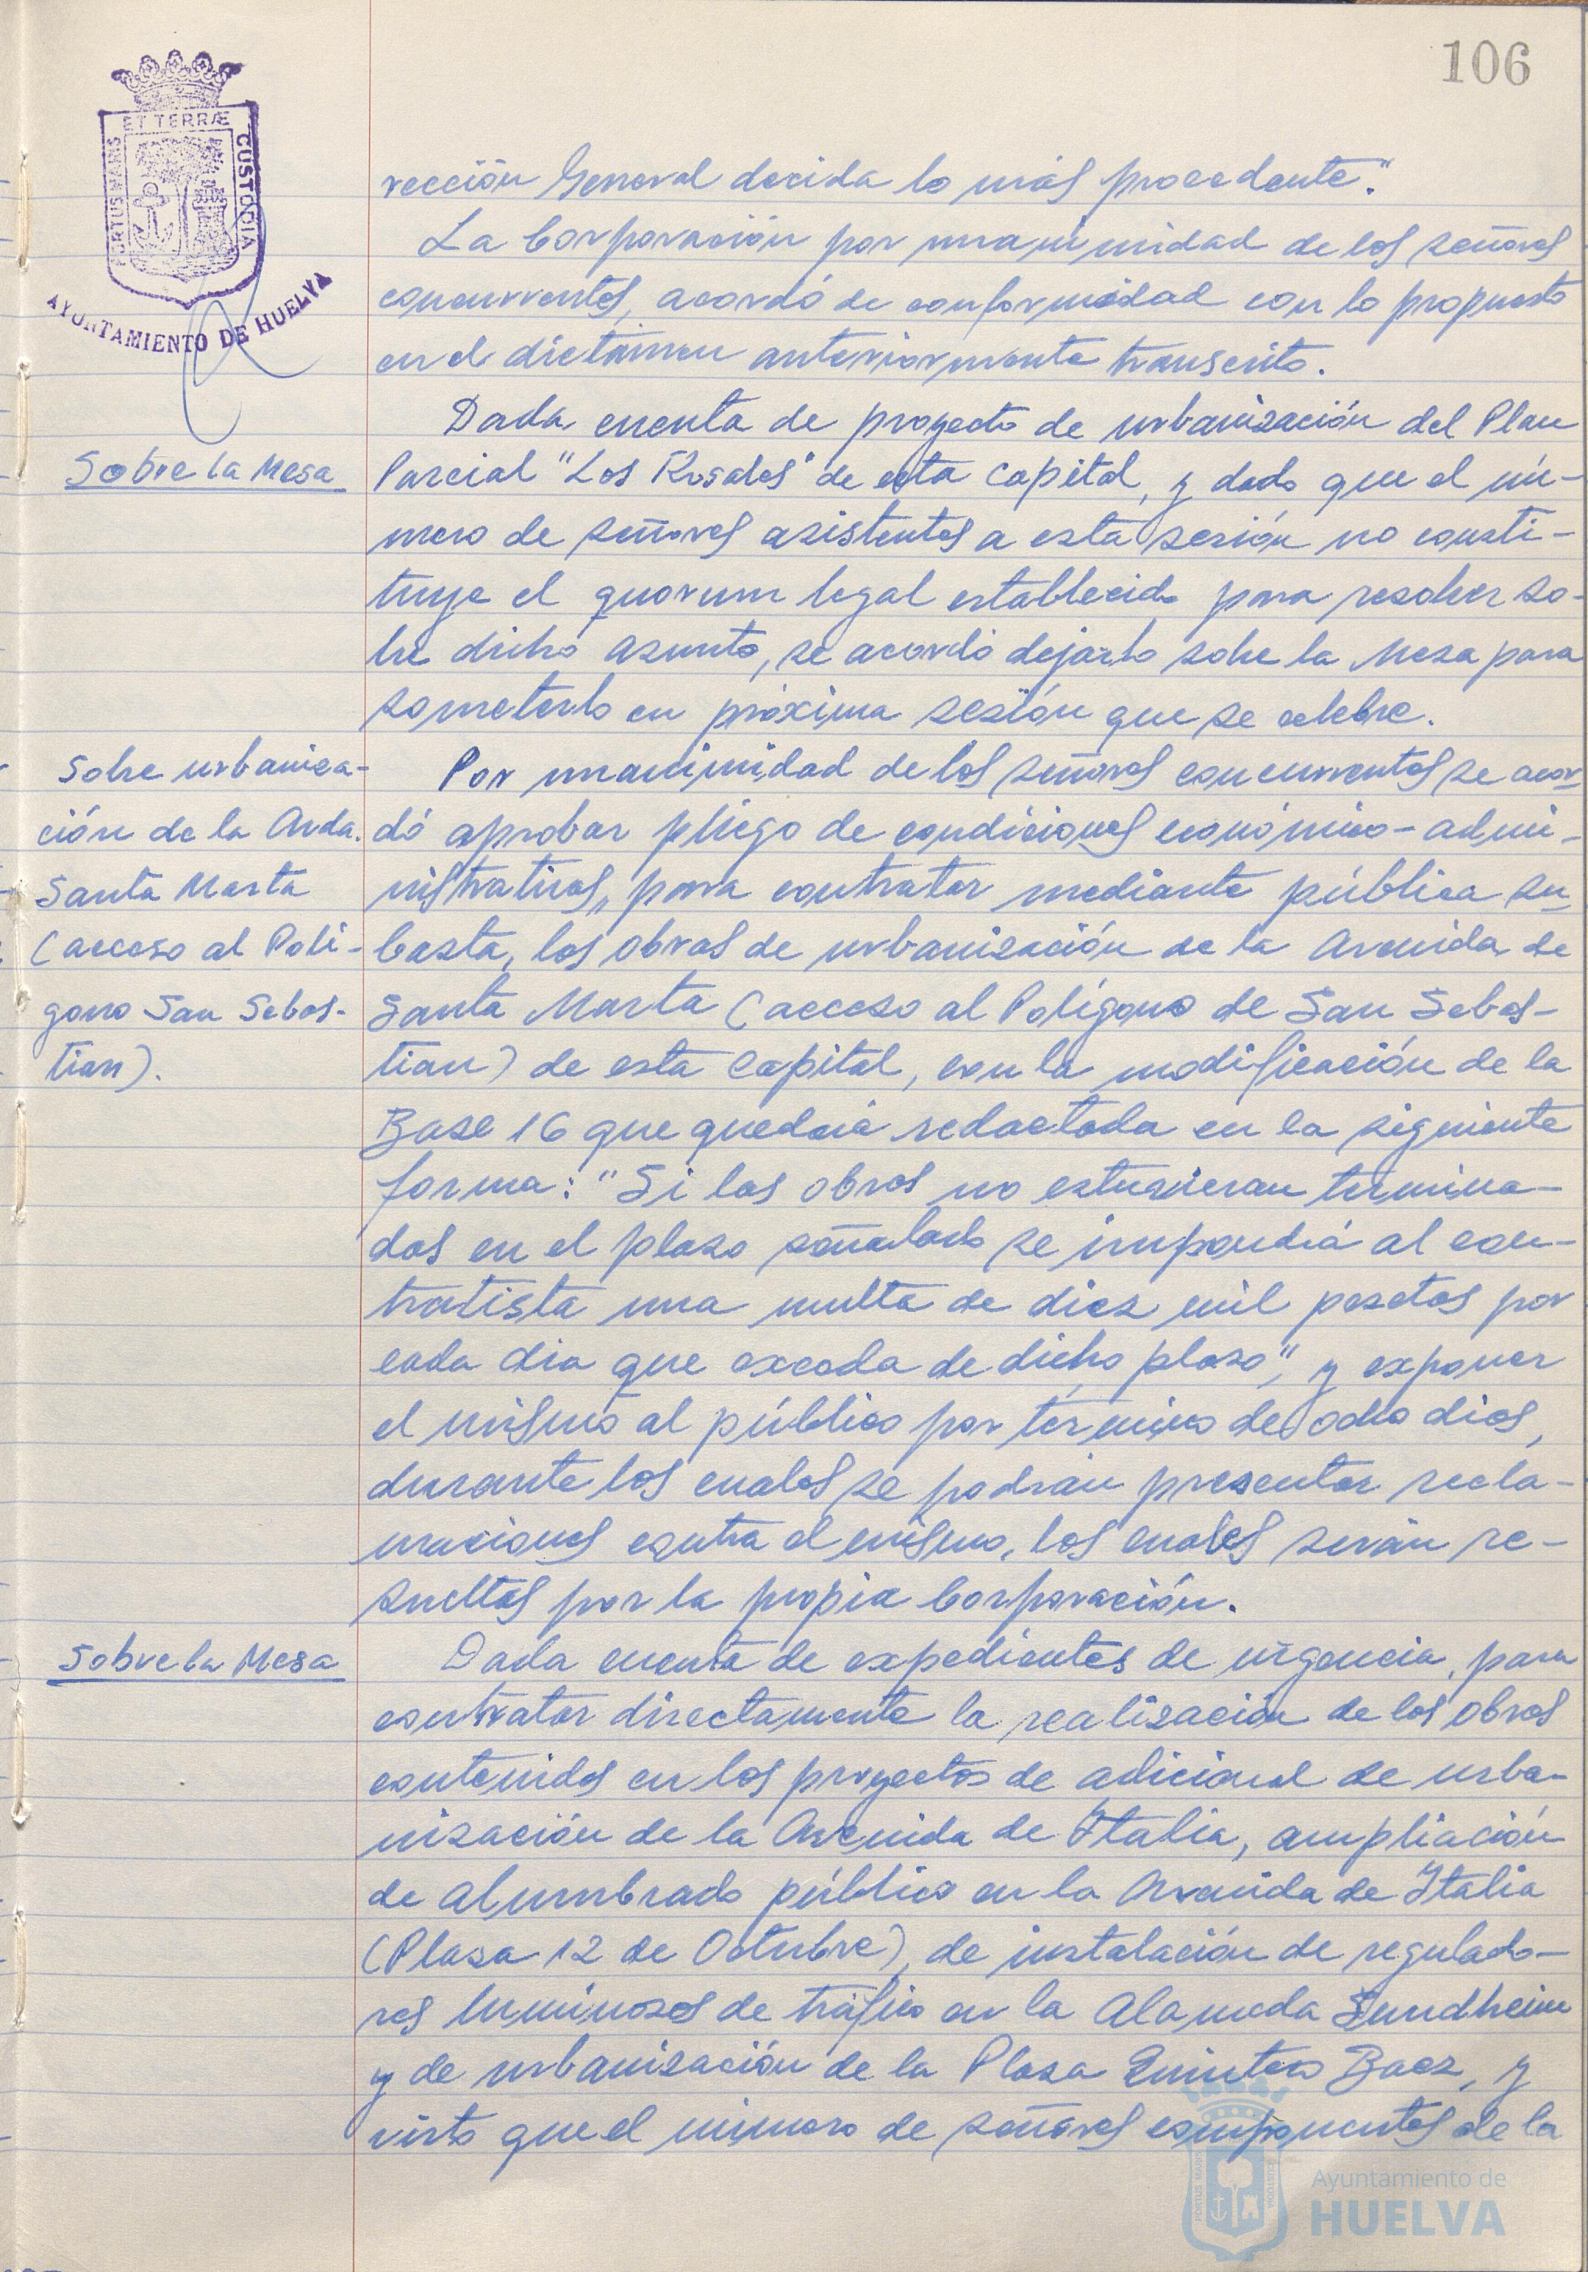 106
PORTUS MARIS
ET TERRÆ
CUSTODIA
AYUNTAMIENTO DE HUELVA
rección General decida lo más procedente."
La Corporación por unanimidad de los señores
concurrentes, acordó de conformidad con lo propuesto
en el dictámen anteriormente transcrito.
Sobre la Mesa
Dada cuenta de proyecto de urbanización del Plan
Parcial "Los Rosales" de esta Capital, y dado que el nú-
mero de señores asistentes a esta sesión no consti-
tuye el quorum legal establecido para resolver so-
bre dicho asunto, se acordó dejarlo sobre la Mesa para
someterlo en próxima sesión que se celebre.
Sobre urbaniza-
ción de la Avda.
Santa Marta
(acceso al Polí-
gono San Sebas-
tian).
Por unanimidad de los señores concurrentes se acor-
dó aprobar pliego de condiciones económico-admi-
nistrativas, para contratar mediante pública su-
basta, las obras de urbanización de la Avenida de
Santa Marta (acceso al Polígono de San Sebas-
tian) de esta Capital, con la modificación de la
Base 16 que quedará redactada en la siguiente
forma: "Si las obras no estuvieran termina-
das en el plazo señalado se impondrá al con-
tratista una multa de diez mil pesetas por
cada dia que exceda de dicho plazo", y exponer
el mismo al público por término de ocho dias,
durante los cuales se podrán presentar recla-
maciones contra el mismo, las cuales serán re-
sueltas por la propia Corporación.
Sobre la Mesa
Dada cuenta de expedientes de urgencia, para
contratar directamente la realización de las obras
contenidas en los proyectos de adicional de urba-
nización de la Avenida de Italia, ampliación
de alumbrado público en la Avenida de Italia
(Plaza 12 de Octubre), de instalación de regulado-
res luminosos de tráfico en la Alameda Sundheim
y de urbanización de la Plaza Quintero Baez, y
visto que el número de señores componentes de la
Ayuntamiento de
HUELVA